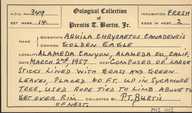 Oological Collection
of
Preston T. Burtis, Jr.
A.O.U. NO. 349
SET MARK 14
INCUBATION FRESH
EGGS IN SET 2
NAME AQUILA CHRYSAETOS CANADENSIS
GOLDEN EAGLE
LOCALITY ALAMEDA CANYON, ALAMEDA CO., CALIF.
DATE MARCH 2ND, 1957 NEST COMPOSED OF LARGE
STICKS LINED WITH GRASS AND GREEN
LEAVES, PLACED 60 FT. UP IN SYCAMORE
TREE, USED ROPE TIED TO LIMB ABOVE TO
GET OVER RIM OF NEST P.T. BURTIS